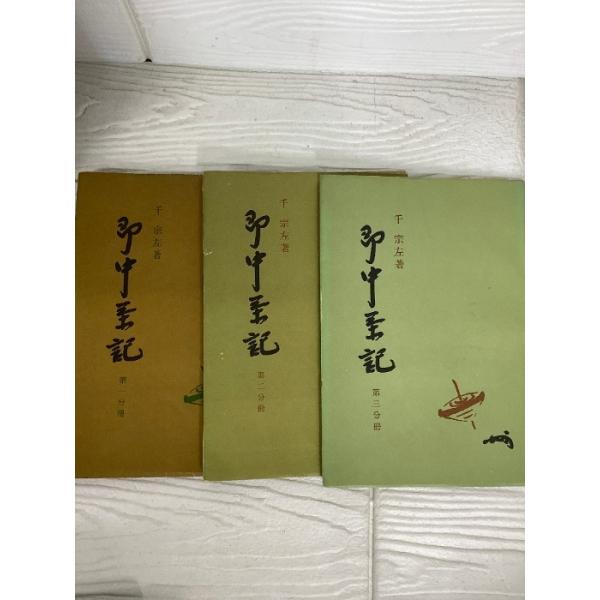 千宗左著
即中茶記
第一分冊
千宗左著
即中茶記
第二分冊
千宗左著
即中茶記
第三分冊